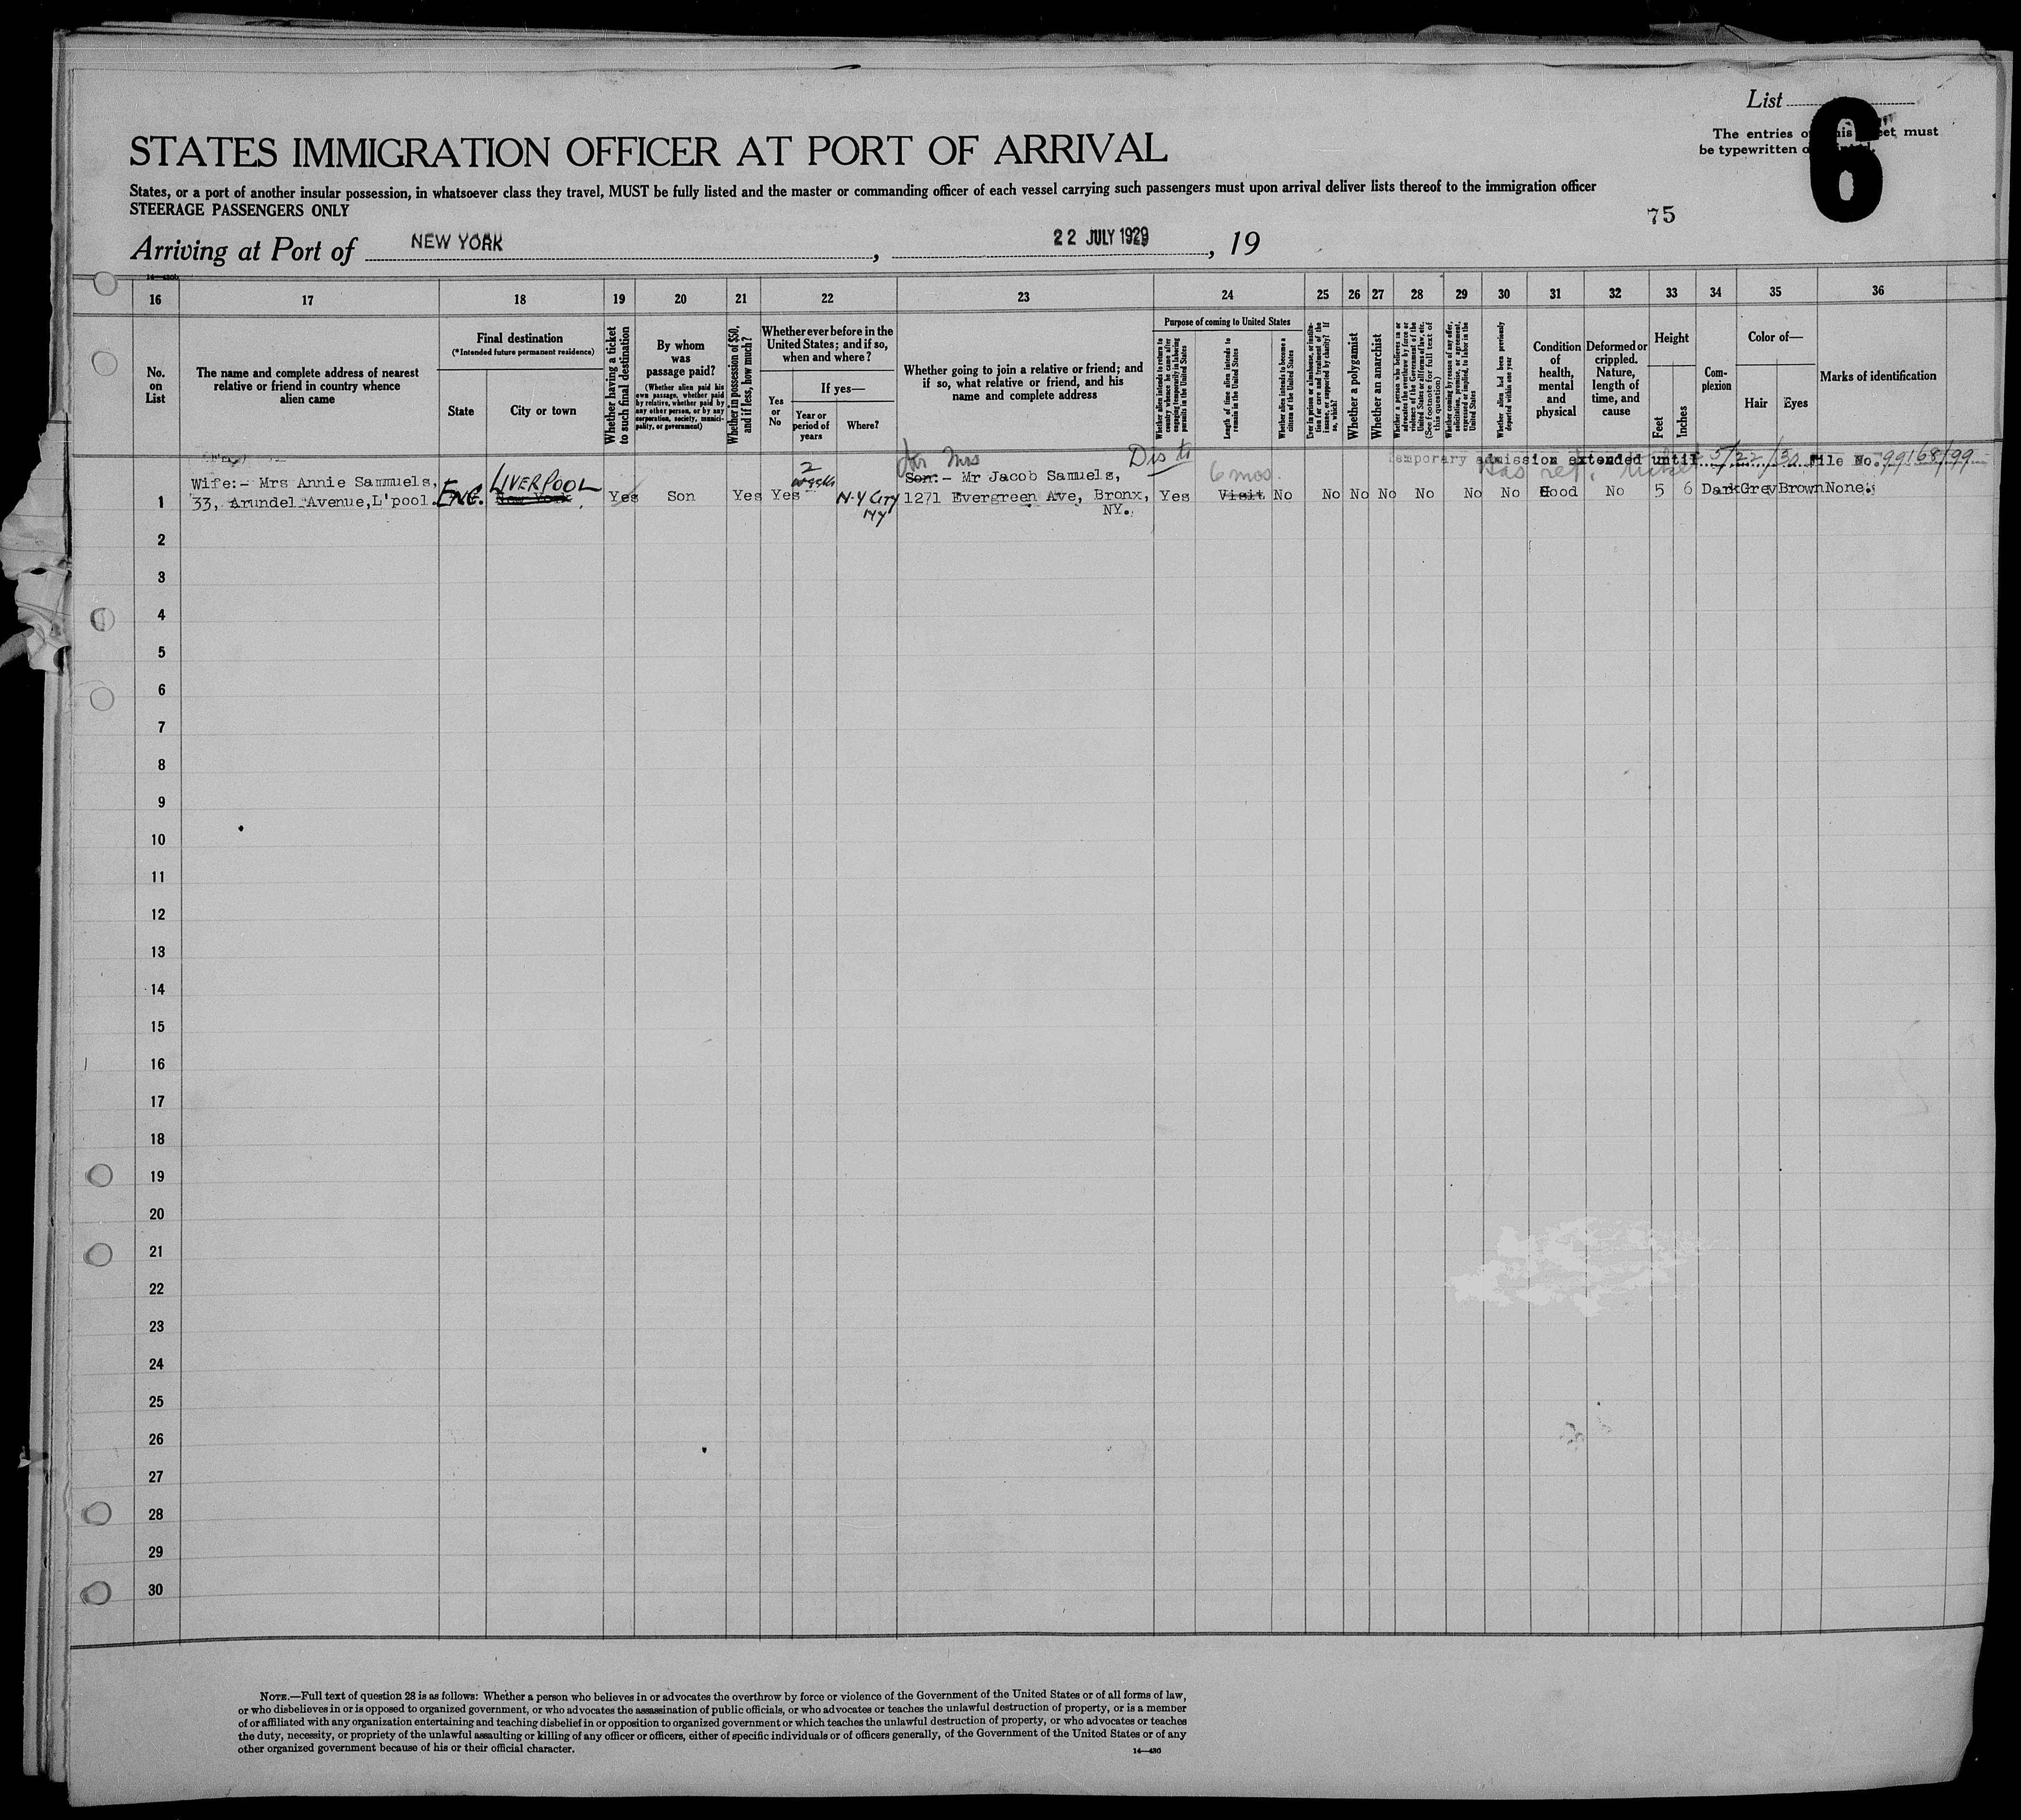 List
6
The entries o his eet must
be typewritten o
STATES IMMIGRATION OFFICER AT PORT OF ARRIVAL
States, or a port of another insular possession, in whatsoever class they travel, MUST be fully listed and the master or commanding officer of each vessel carrying such passengers must upon arrival deliver lists thereof to the immigration officer
STEERAGE PASSENGERS ONLY
75
Arriving at Port of NEW YORK, 22 JULY 1929, 19
16 17 18 19 20 21 22 23 24 25 26 27 28 29 30 31 32 33 34 35 36
No. on List
The name and complete address of nearest relative or friend in country whence alien came
Final destination
(*Intended future permanent residence)
State
City or town
Whether having a ticket to such final destination
By whom was passage paid?
(Whether alien paid his own passage, whether paid by relative, whether paid by any other person, or by any corporation, society, municipality, or government)
Whether in possession of $50, and if less, how much?
Whether ever before in the United States; and if so, when and where?
Yes or No
If yes—
Year or period of years
Where?
Whether going to join a relative or friend; and if so, what relative or friend, and his name and complete address
Purpose of coming to United States
Whether alien intends to return to country whence he came after engaging temporarily in laboring pursuits in the United States
Length of time alien intends to remain in the United States
Whether alien intends to become a citizen of the United States
Ever in prison or almshouse, or institution for care and treatment of the insane, or supported by charity? If so, which?
Whether a polygamist
Whether an anarchist
Whether a person who believes in or advocates the overthrow by force or violence of the Government of the United States or all forms of law, etc. (See footnote for full text of this question)
Whether coming by reason of any offer, solicitation, promise, or agreement, expressed or implied, to labor in the United States
Whether alien had been previously deported within one year
Condition of health, mental and physical
Deformed or crippled. Nature, length of time, and cause
Height
Feet
Inches
Complexion
Color of—
Hair
Eyes
Marks of identification
for Mrs
Dis to
Temporary admission extended until 5/22/30 File No. 99168/99
Has ret. ticket
Wife:- Mrs Annie Sammuels, LIVERPOOL 2 weeks Son:- Mr Jacob Samuels, 6 mos.
1 33, Arundel Avenue, L'pool. ENG. New York Yes Son Yes Yes N.Y City NY 1271 Evergreen Ave, Bronx, NY. Yes Visit No No No No No No No Good No 5 6 Dark Grey Brown None.
2
3
4
5
6
7
8
9
10
11
12
13
14
15
16
17
18
19
20
21
22
23
24
25
26
27
28
29
30
NOTE.—Full text of question 28 is as follows: Whether a person who believes in or advocates the overthrow by force or violence of the Government of the United States or of all forms of law,
or who disbelieves in or is opposed to organized government, or who advocates the assassination of public officials, or who advocates or teaches the unlawful destruction of property, or is a member
of or affiliated with any organization entertaining and teaching disbelief in or opposition to organized government or which teaches the unlawful destruction of property, or who advocates or teaches
the duty, necessity, or propriety of the unlawful assaulting or killing of any officer or officers, either of specific individuals or of officers generally, of the Government of the United States or of any
other organized government because of his or their official character.
14—430